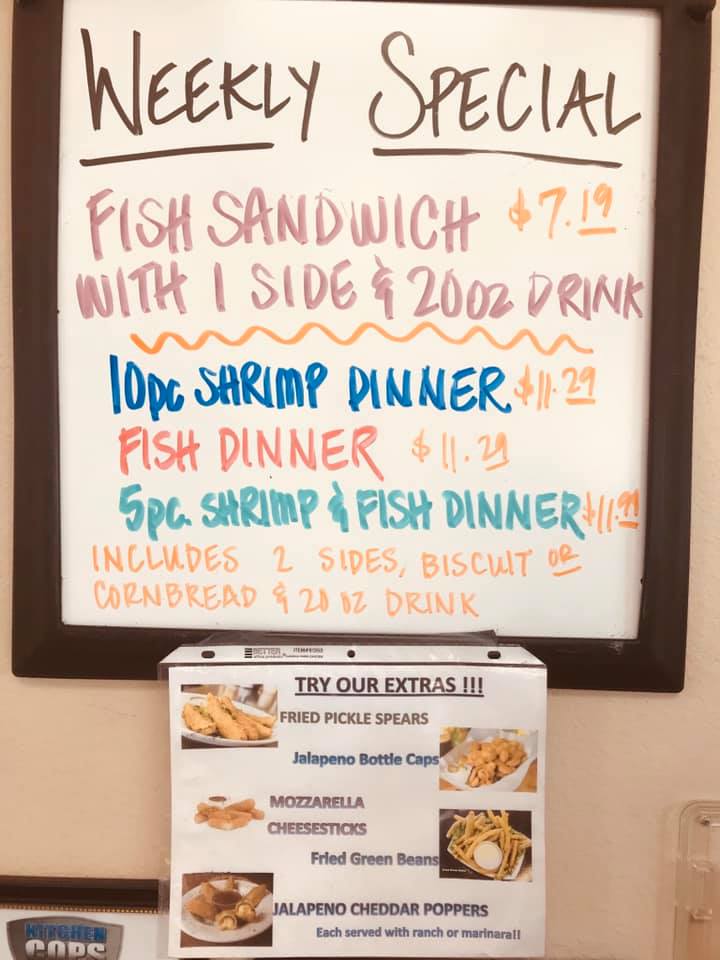 WEEKLY SPECIAL
FISH SANDWICH $7.19
WITH 1 SIDE & 20oz DRINK
10pc SHRIMP DINNER $11.29
FISH DINNER $11.29
5pc. SHRIMP & FISH DINNER $11.99
INCLUDES 2 SIDES, BISCUIT OR
CORNBREAD & 20 oz DRINK
BETTER
TRY OUR EXTRAS !!!
FRIED PICKLE SPEARS
Jalapeno Bottle Caps
MOZZARELLA
CHEESESTICKS
Fried Green Beans
JALAPENO CHEDDAR POPPERS
Each served with ranch or marinara!!
KITCHEN
COPS